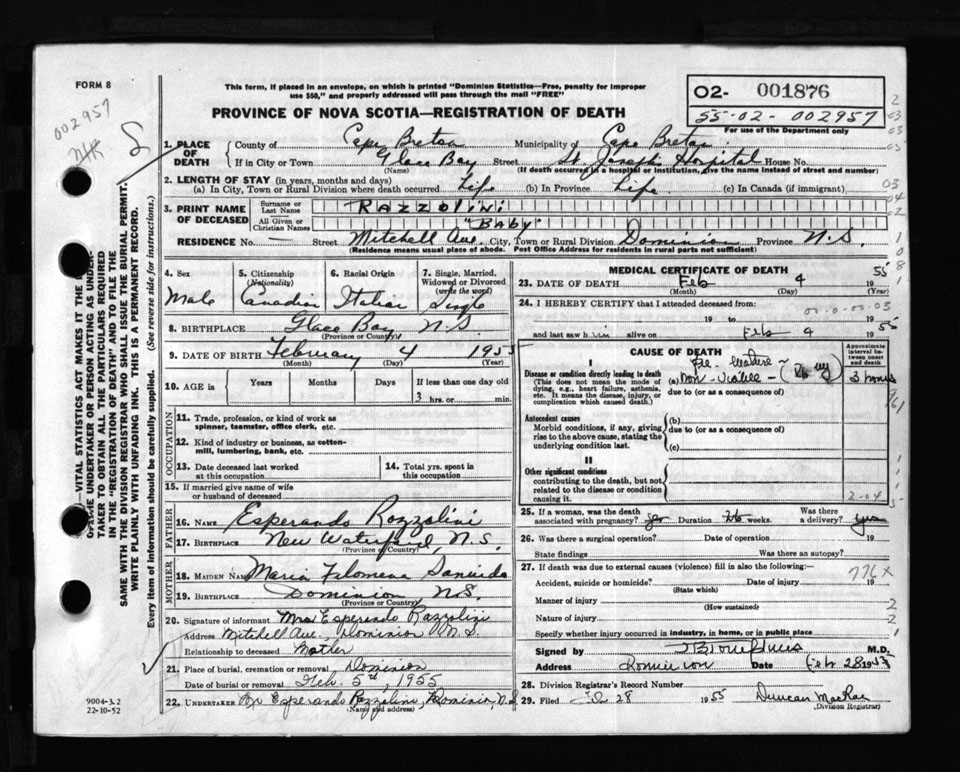 FORM 8
This form, if placed in an envelope, on which is printed "Dominion Statistics—Free, penalty for improper
use $50," and properly addressed will pass through the mail "FREE"
PROVINCE OF NOVA SCOTIA—REGISTRATION OF DEATH
O2- 001876
55-02-002957
For use of the Department only
002957
1. PLACE OF DEATH
County of Cape Breton Municipality of Cape Breton
If in City or Town Glace Bay Street St. Joseph's Hospital House No.
(Name) (If death occurred in a hospital or institution, give the name instead of street and number)
2. LENGTH OF STAY (in years, months and days)
(a) In City, Town or Rural Division where death occurred Life (b) In Province Life (c) In Canada (if immigrant)
3. PRINT NAME OF DECEASED
Surname or Last Name RAZZOLINI
All Given or Christian Names "BABY"
RESIDENCE No. — Street Mitchell Ave. City, Town or Rural Division Dominion Province N.S.
(Residence means usual place of abode. Post Office Address for residents in rural parts not sufficient)
4. Sex Male
5. Citizenship (Nationality) Canadian
6. Racial Origin Italian
7. Single, Married, Widowed or Divorced (write the word) Single
8. BIRTHPLACE Glace Bay N.S.
(Province or Country)
9. DATE OF BIRTH February 4 1955
(Month) (Day) (Year)
10. AGE in Years Months Days If less than one day old
3 hrs. or min.
OCCUPATION
11. Trade, profession, or kind of work as
spinner, teamster, office clerk, etc.
12. Kind of industry or business, as cotton-
mill, lumbering, bank, etc.
13. Date deceased last worked
at this occupation
14. Total yrs. spent in
this occupation
15. If married give name of wife
or husband of deceased
FATHER
16. NAME Esperando Razzolini
17. BIRTHPLACE New Waterford, N.S.
(Province or Country)
MOTHER
18. MAIDEN NAME Maria Filomena
19. BIRTHPLACE Dominion N.S.
(Province or Country)
20. Signature of informant Mrs Esperando Razzolini
Address Mitchell Ave., Dominion N.S.
Relationship to deceased Mother
21. Place of burial, cremation or removal Dominion
Date of burial or removal Feb. 5th, 1955
22. UNDERTAKER Esperando Razzolini, Dominion, N.S.
(Name and address)
MEDICAL CERTIFICATE OF DEATH
23. DATE OF DEATH Feb 4 1955
(Month) (Day) (Year)
24. I HEREBY CERTIFY that I attended deceased from:
19 to 19
and last saw him alive on Feb 4 1955
CAUSE OF DEATH
Approximate interval between onset and death
I
Disease or condition directly leading to death
(This does not mean the mode of
dying, e.g., heart failure, asthenia,
etc. It means the disease, injury, or
complication which caused death.)
(a) Non-Viable 3 hours
due to (or as a consequence of)
Antecedent causes
Morbid conditions, if any, giving
rise to the above cause, stating the
underlying condition last.
(b)
due to (or as a consequence of)
(c)
II
Other significant conditions
contributing to the death, but not
related to the disease or condition
causing it.
25. If a woman, was the death
associated with pregnancy? Duration 26 weeks. Was there a delivery? yes
26. Was there a surgical operation? Date of operation 19
State findings Was there an autopsy?
27. If death was due to external causes (violence) fill in also the following:
776X
Accident, suicide or homicide? Date of injury 19
(State which)
Manner of injury
(How sustained)
Nature of injury
Specify whether injury occurred in industry, in home, or in public place
Signed by M.D.
Address Dominion Date Feb 28 1955
28. Division Registrar's Record Number
29. Filed Feb 28 1955 Duncan MacRae
(Division Registrar)
9004-3.2
22-10-52
VITAL STATISTICS ACT MAKES IT THE
UNDERTAKER OR PERSON ACTING AS UNDER-
TAKER TO OBTAIN ALL THE PARTICULARS REQUIRED
IN THE "REGISTRATION OF DEATH" AND TO FILE THE
SAME WITH THE DIVISION REGISTRAR WHO SHALL ISSUE THE BURIAL PERMIT.
WRITE PLAINLY WITH UNFADING INK. THIS IS A PERMANENT RECORD.
Every item of information should be carefully supplied. (See reverse side for instructions.)